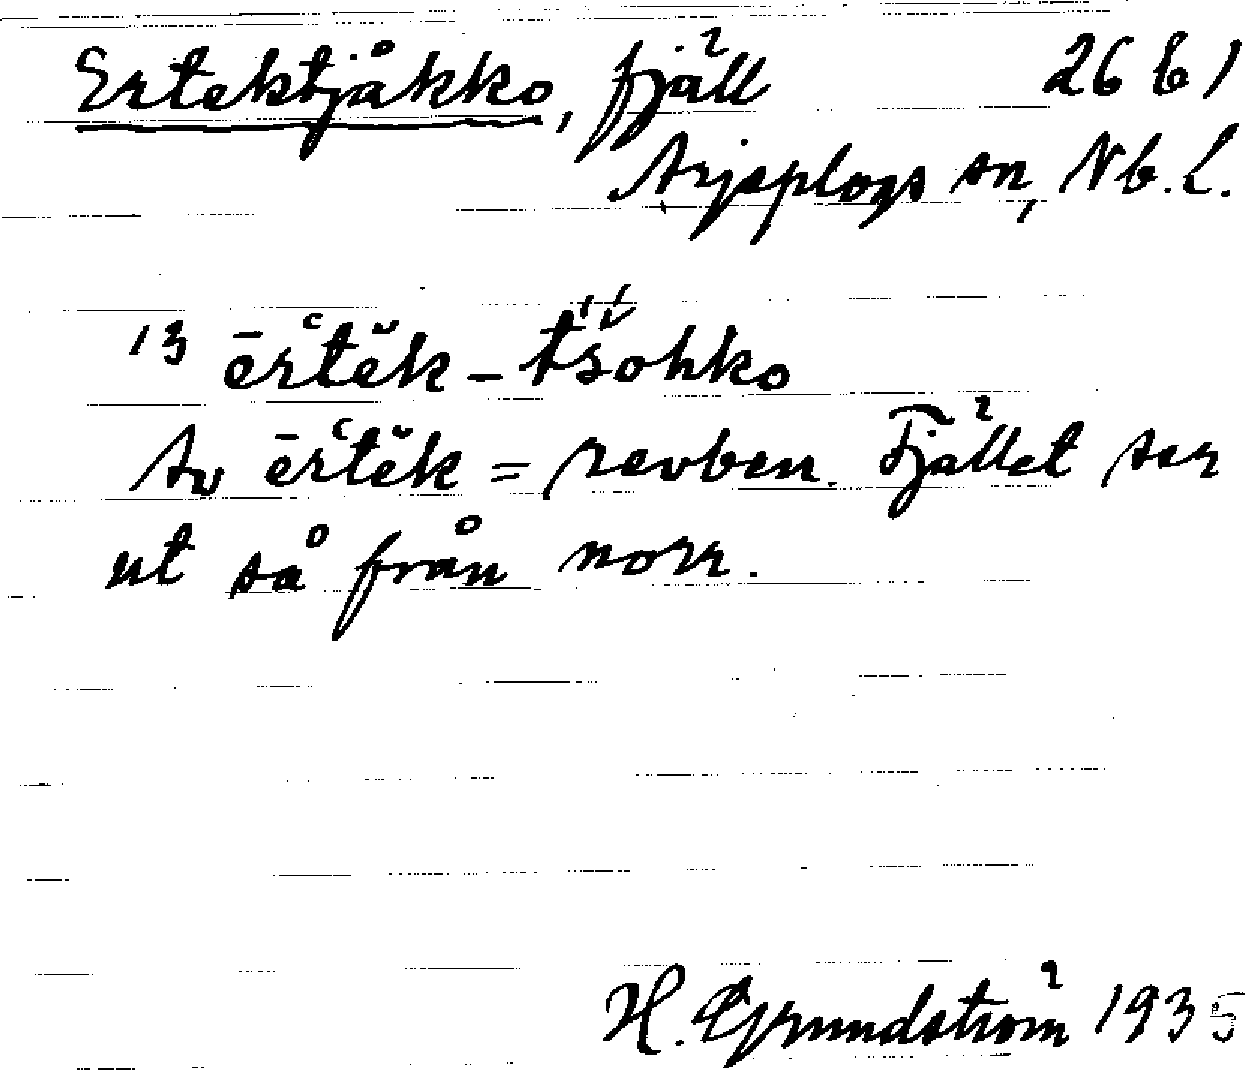 Ertektjåkko, fjäll 26 b 1
Arjeplogs sn, Nb. L.
13 ērtĕk-tšohko
Av ērtĕk = revben. Fjället ser
ut så från norr.
H. Grundström 1935